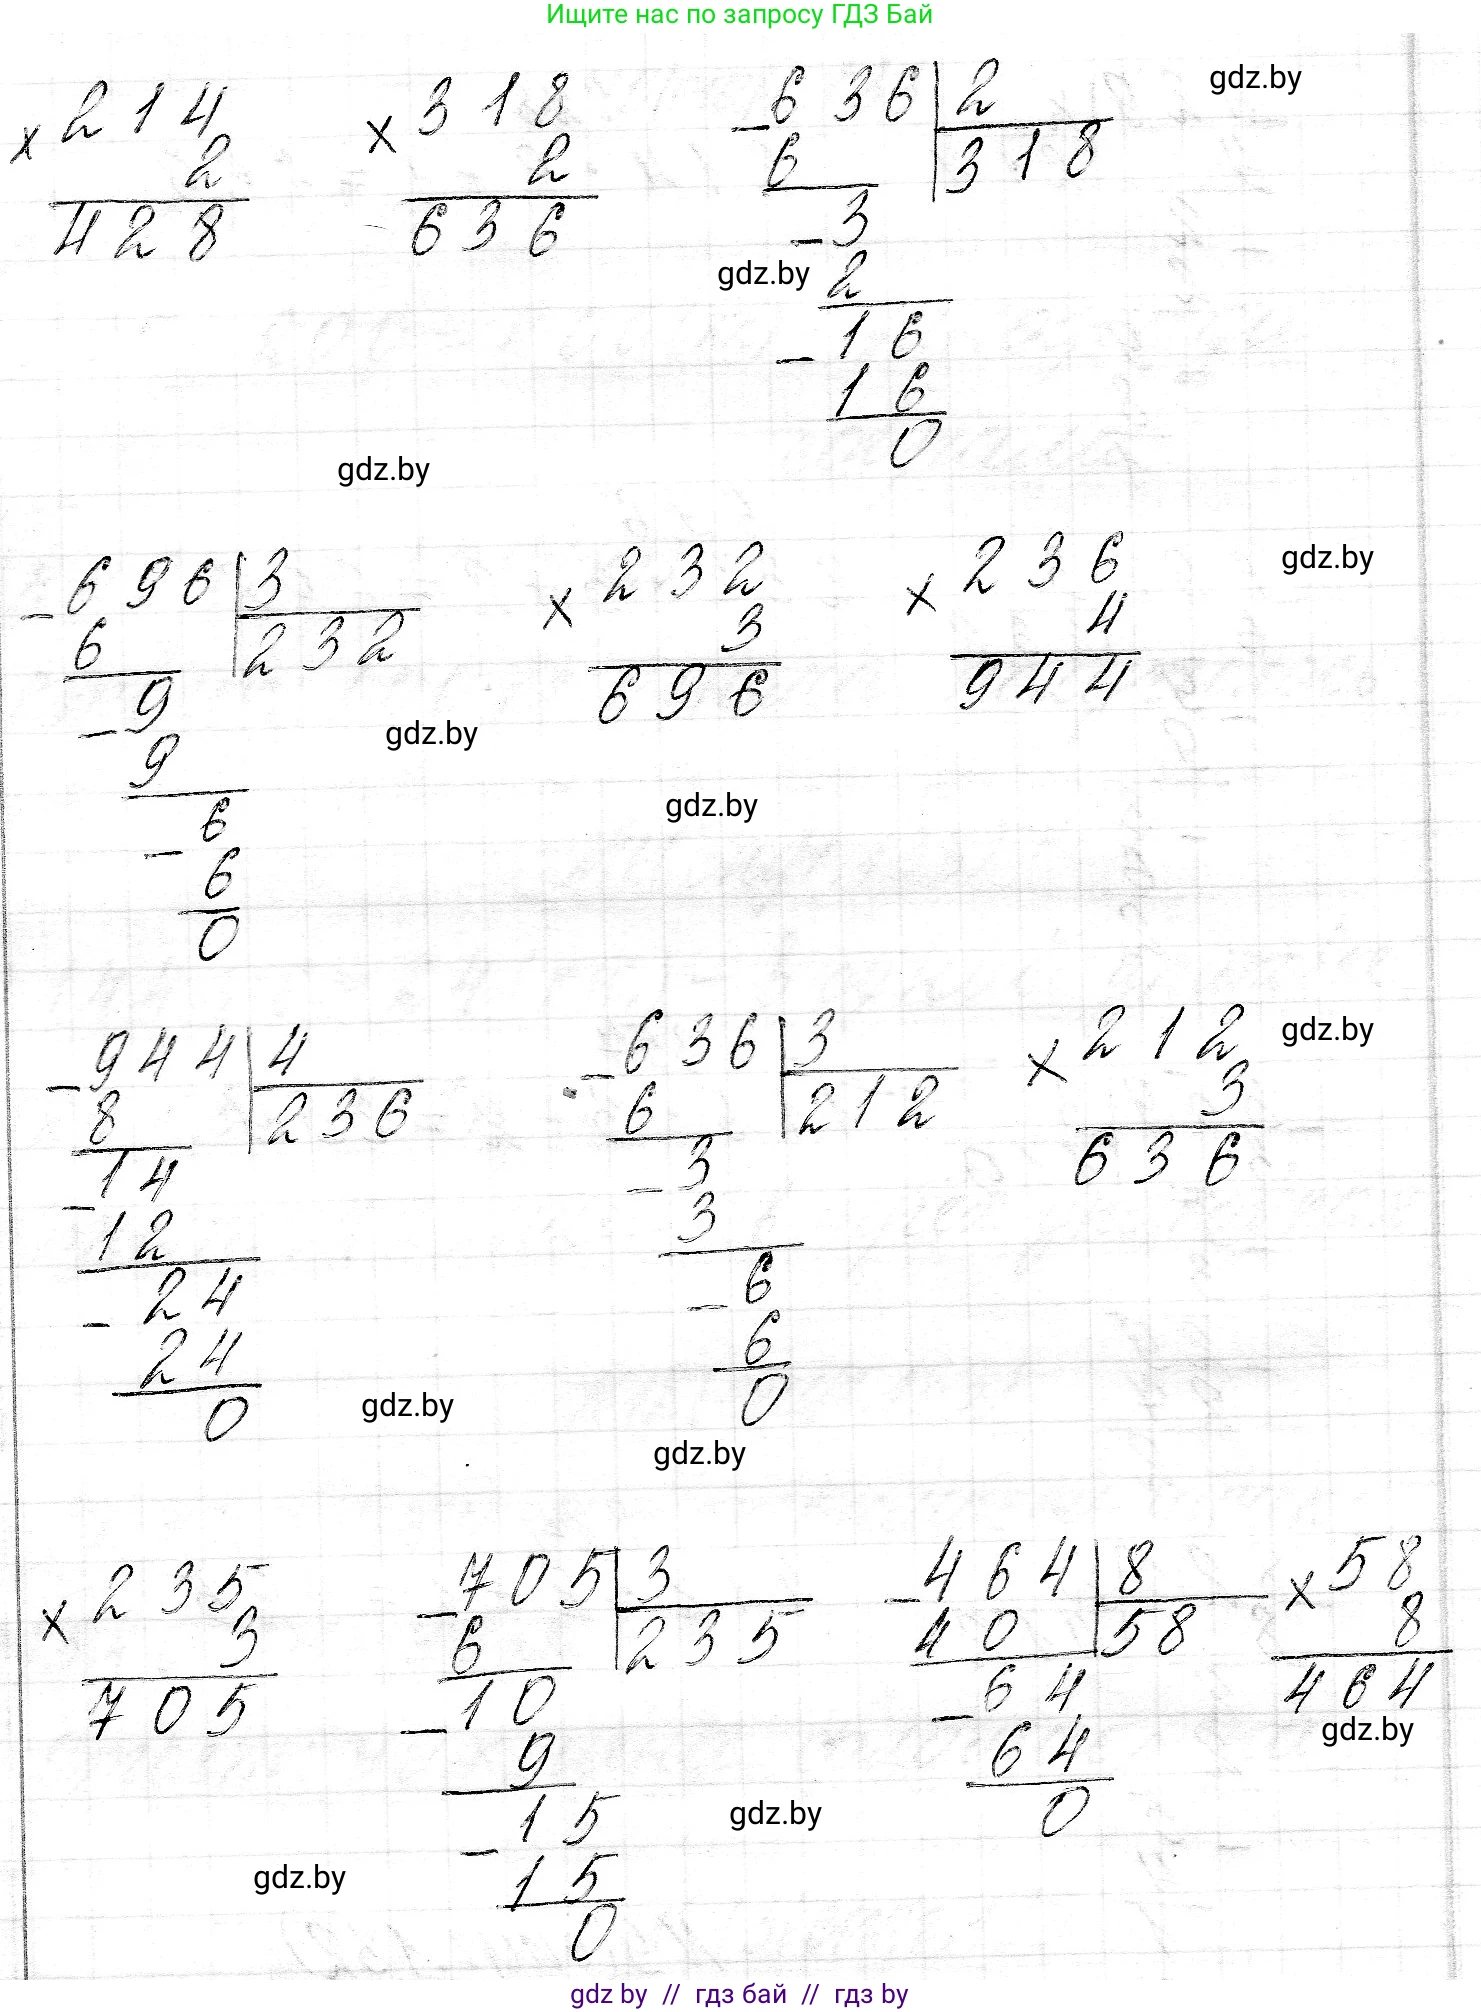 Ищите нас по запросу ГДЗ Бай
× 214   × 318   − 636 | 2   gdz.by
2   2   6   318
428   636   − 3
gdz.by   2
− 16
16
0
gdz.by
− 696 | 3   × 232   × 236   gdz.by
6   232   3   4
− 9   696   944
9   gdz.by
6   gdz.by
− 6
0
− 944 | 4   − 636 | 3   × 212   gdz.by
8   236   6   212   3
− 14   − 3   636
12   3
− 24   − 6
24   6
0   gdz.by   0
gdz.by
× 235   − 705 | 3   − 464 | 8   × 58
3   6   235   40   58   8
705   − 10   − 64   464
9   64   gdz.by
− 15   gdz.by   0
gdz.by   15
0
gdz by // гдз бай // гдз by